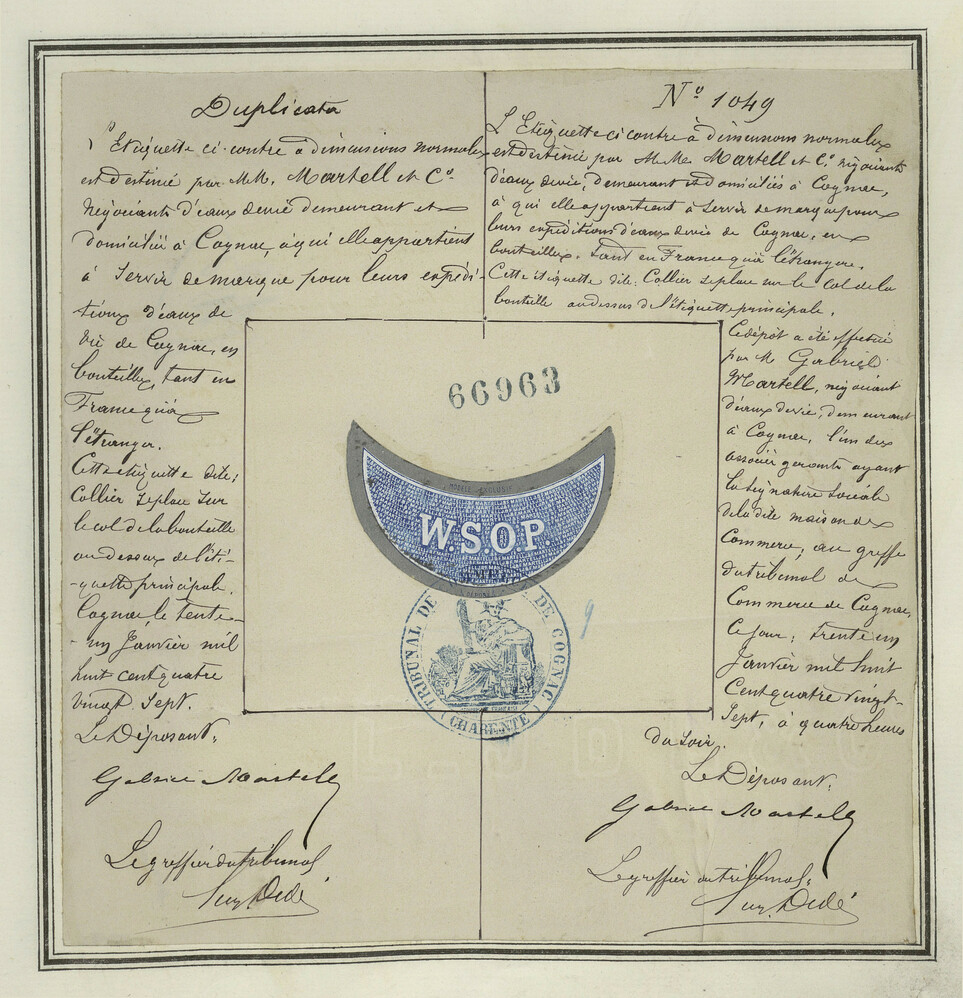 Duplicata
L'Etiquette ci-contre à dimensions normales
est destinée par M.M. Martell et Cº
Négociants d'eaux de vie demeurant et
domiciliés à Cognac, à qui elle appartient
à servir de marque pour leurs expédi-
tions d'eaux de
vie de Cognac, en
bouteilles, tant en
France qu'à
l'étranger.
Cette étiquette dite:
Collier se place sur
le col de la bouteille
au dessus de l'éti-
-quette principale.
Cognac, le trente-
-un Janvier mil
huit cent quatre
vingt sept.
Le Déposant,
Gabriel Martell
Le greffier du tribunal
Nº 1049
L'Etiquette ci contre à dimensions normales
est destinée par M.M. Martell et Cº négociants
d'eaux de vie, demeurant et domiciliés à Cognac,
à qui elle appartient à servir de marque pour
leurs expéditions d'eaux de vie de Cognac, en
bouteilles, tant en France qu'à l'étranger.
Cette étiquette dite: Collier se place sur le col de la
bouteille au dessus de l'étiquette principale.
Ce dépôt a été effectué
par M Gabriel
Martell, négociant
d'eaux de vie, demeurant
à Cognac, l'un des
associés gérants ayant
la signature sociale
de la dite maison de
Commerce, au greffe
du tribunal de
Commerce de Cognac,
ce jour, trente un
Janvier mil huit
cent quatre vingt-
sept, à quatre heures
du soir.
Le Déposant,
Gabriel Martell
Le greffier du tribunal,
66963
W.S.O.P.
TRIBUNAL DE
DE COGNAC
(CHARENTE)
9